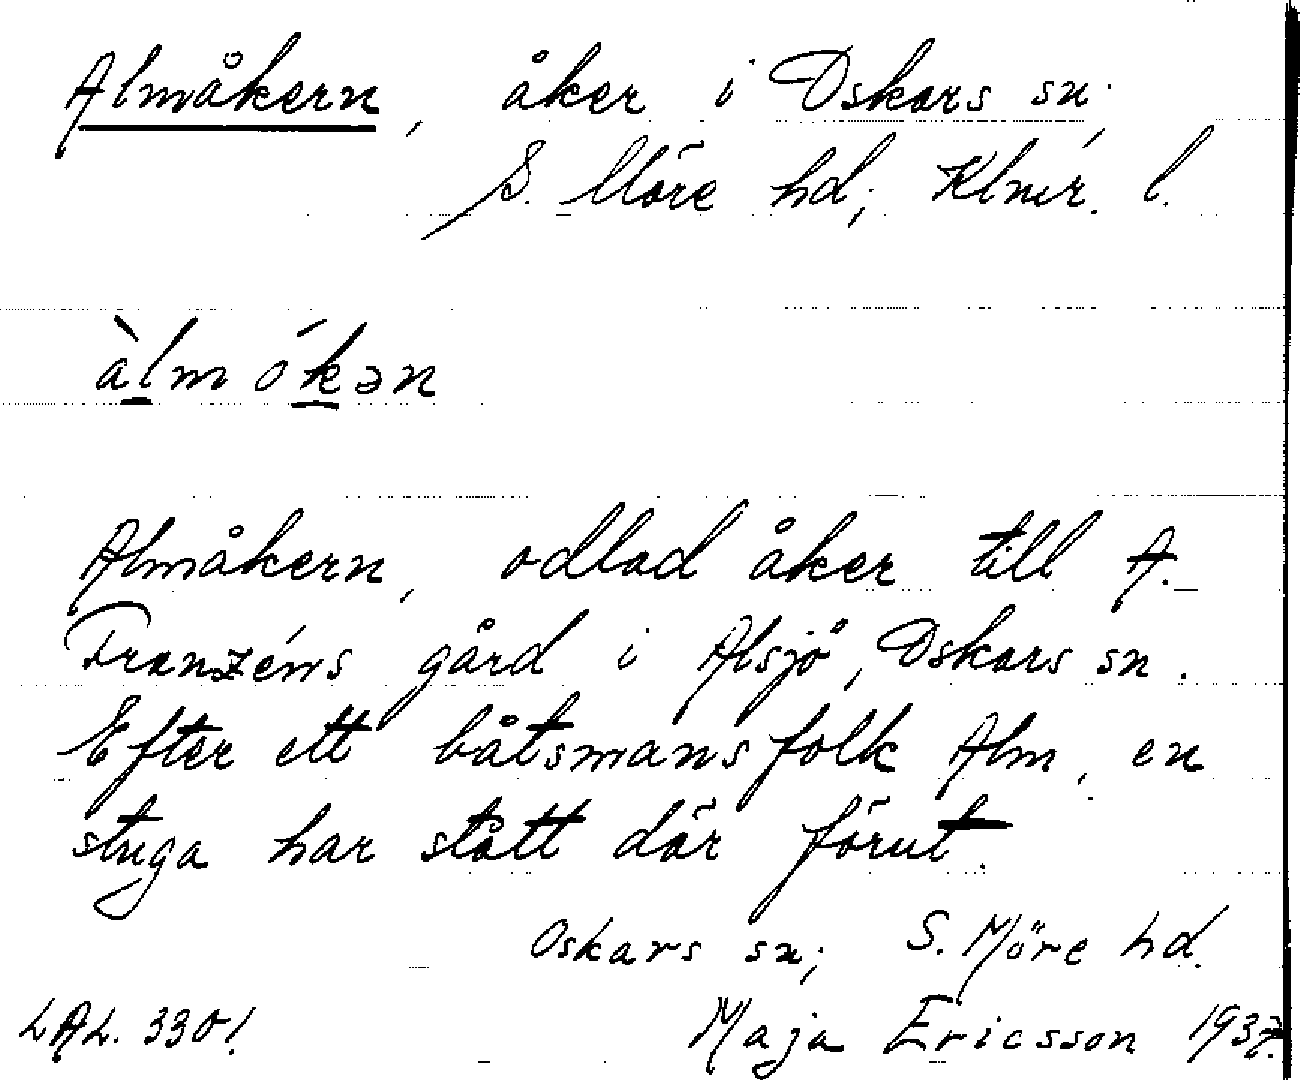 Almåkern, åker i Oskars sn.
S. Möre hd; Klmr. l.
àlm ókən
Almåkern, odlad åker till A.
Franzéns gård i Alsjö, Oskars sn.
Efter ett båtsmansfolk Alm, en
stuga har stått där förut.
Oskars sn; S. Möre hd.
LAL. 3301. Maja Ericsson 1937.